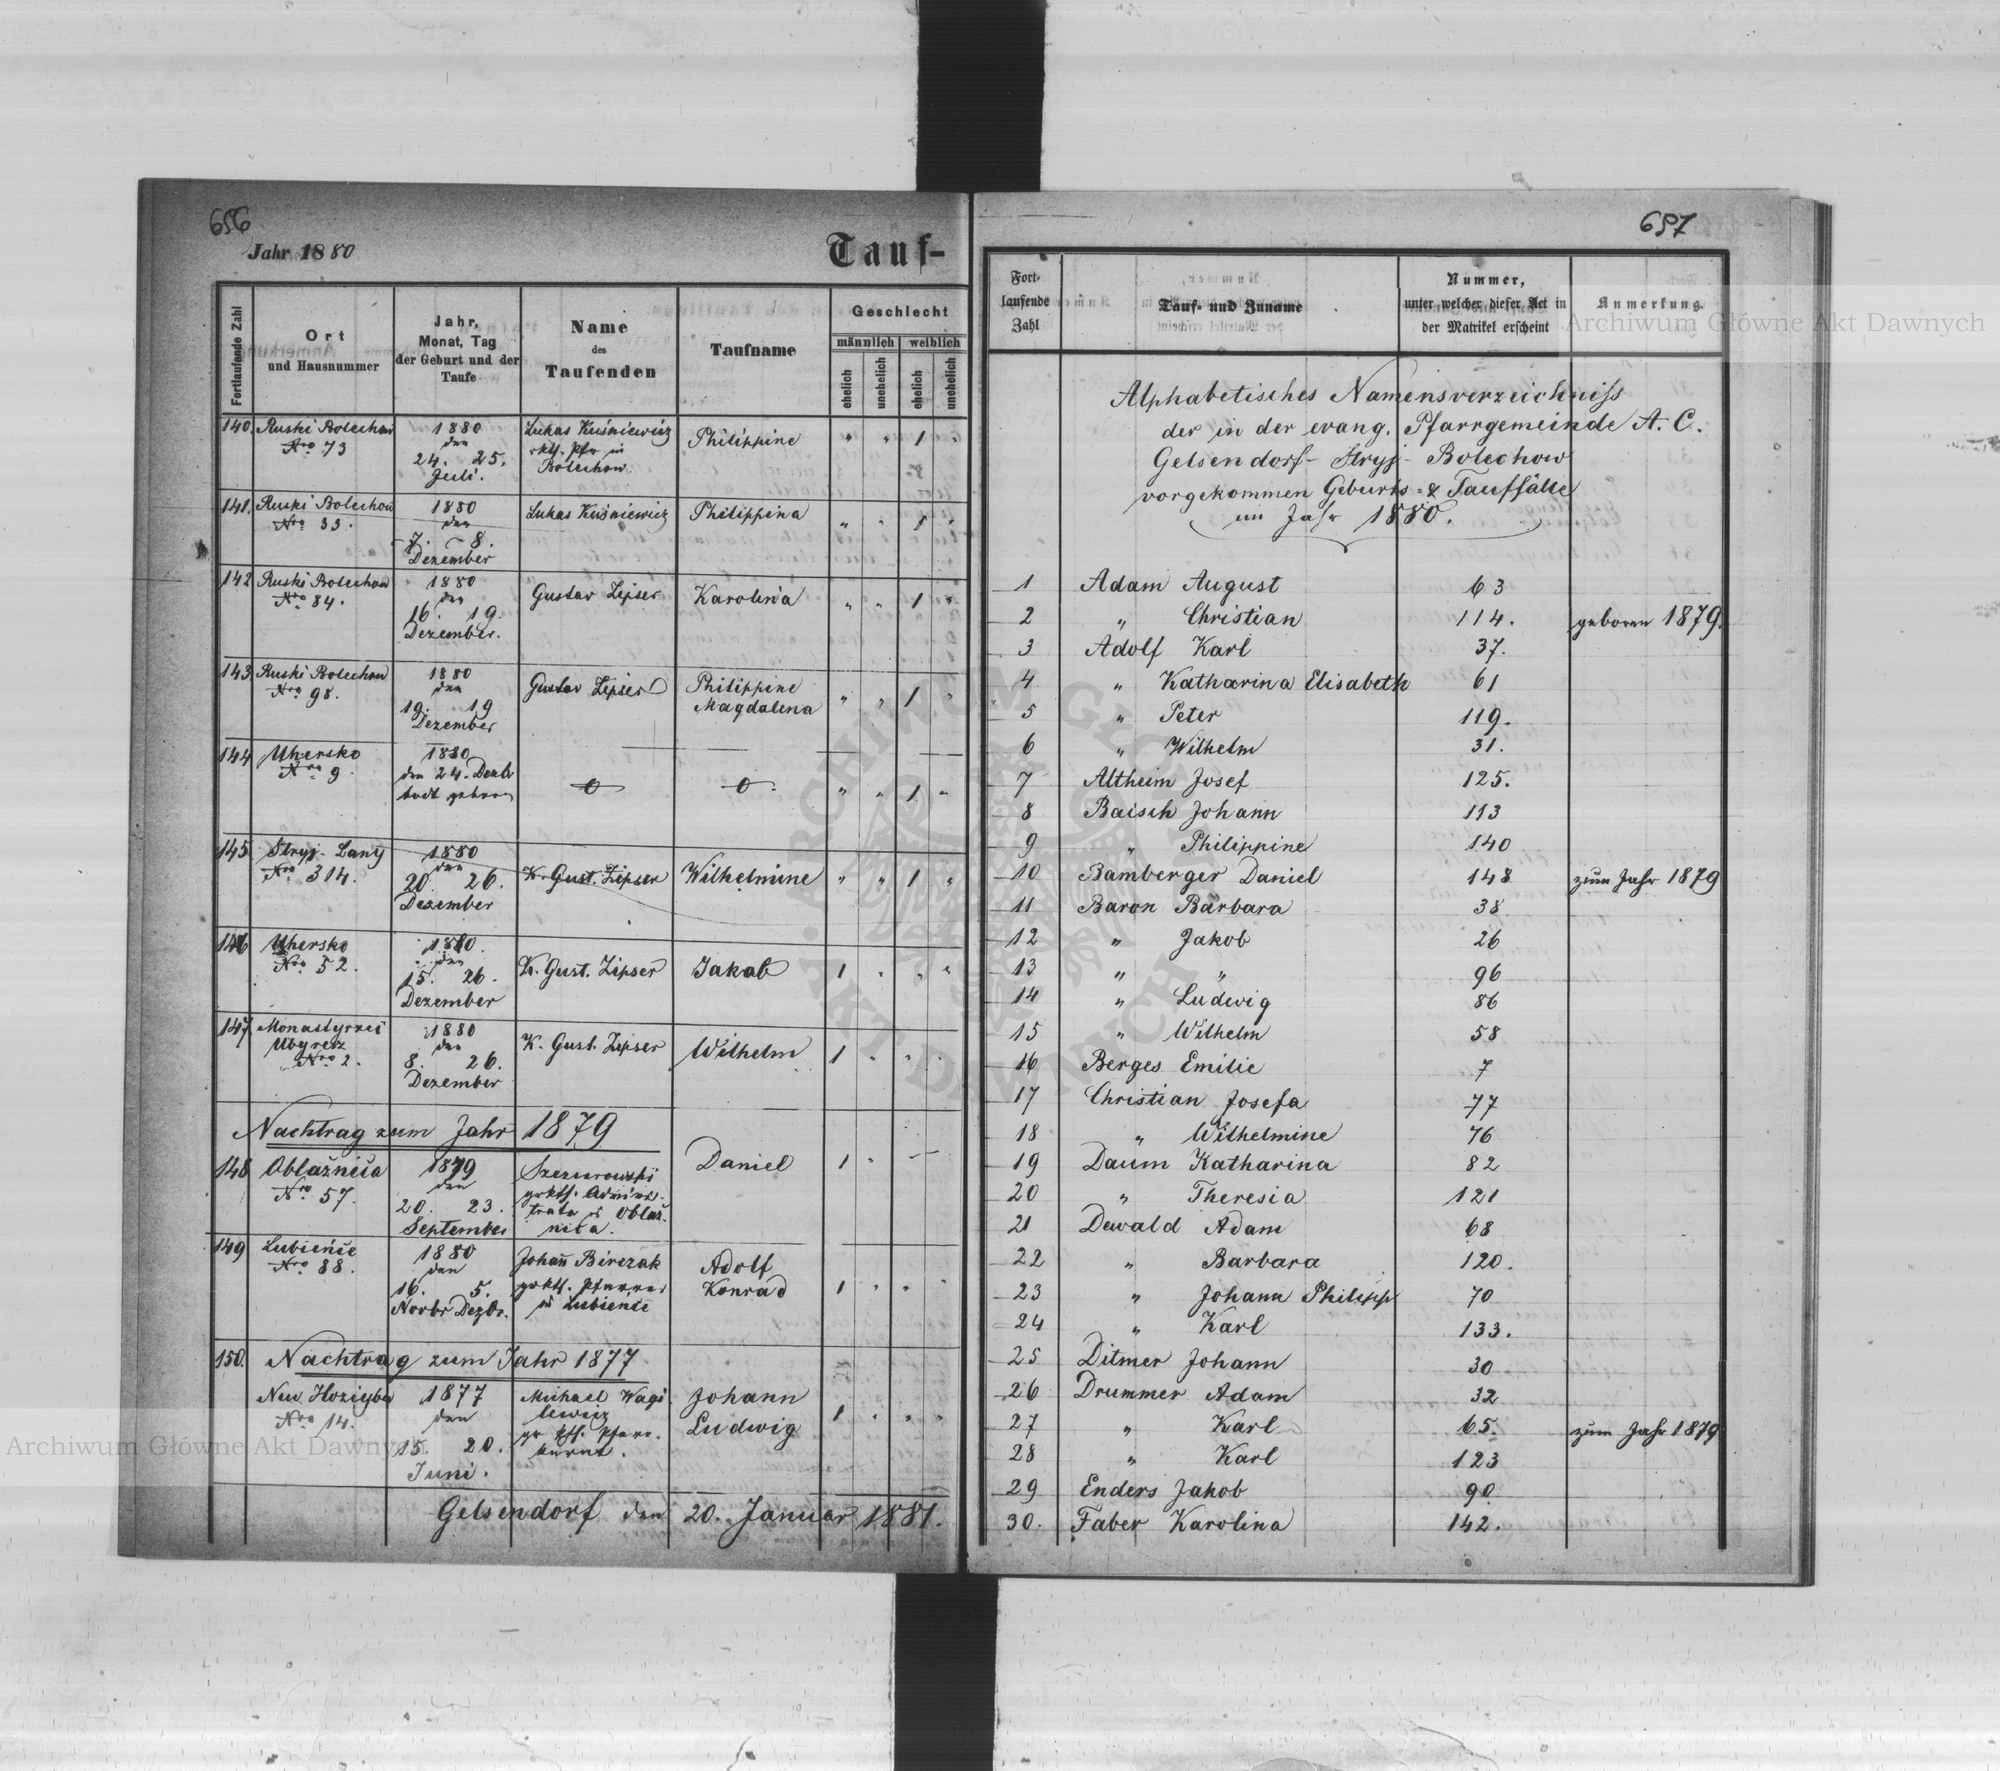 656
Jahr 1880
Tauf-
Fortlaufende Zahl
Ort
und Hausnummer
Jahr,
Monat, Tag
der Geburt und der
Taufe
Name
des
Taufenden
Taufname
Geschlecht
männlich
weiblich
ehelich
unehelich
ehelich
unehelich
140. Ruski Bolechow 1880 Lukas Kuśniewicz Philippine " " 1 "
Nro 73 den rkth. Pfr in
24. 25. Bolechow
Juli.
141. Ruski Bolechow 1880 Lukas Kuśniewicz Philippina " " 1 "
Nro 33. den
7. 8.
Dezember
142 Ruski Bolechow 1880 Gustav Zipser Karolina " " 1 "
Nro 84. den
16. 19.
Dezember.
143 Ruski Bolechow 1880 Gustav Zipser Philippine " " 1 "
Nro 98. den Magdalena
19. 19
Dezember
144 Uhersko 1880 " " 1 "
Nro 9. den 24. Dezb
todt geboren
145 Stryj-Lany 1880 K. Gust. Zipser Wilhelmine " " 1 "
Nro 314. den
20. 26.
Dezember
146 Uhersko 1880 K. Gust. Zipser Jakob 1 " " "
Nro 52. den
15. 26.
Dezember
147 Monastyrzec 1880 K. Gust. Zipser Wilhelm 1 " " "
Nro 2. den
8. 26.
Dezember
Nachtrag zum Jahr 1879
148 Oblaźnica 1879 Daniel 1 "
Nro 57. den
20. 23.
September
149 Lubieńce 1880 Johann Birczak Adolf 1 " " "
Nro 88. den grkth. Pfarrer Konrad
16. 5. in Lubience
Novbr Dezbr.
150. Nachtrag zum Jahr 1877
1877 Michael Wagi Johann 1 " " "
Nro 14. den lewicz Ludwig
15. 20.
Juni.
Gelsendorf den 20. Januar 1881.
657
Fort-
laufende
Zahl
Tauf- und Zuname
Nummer,
unter welcher dieser Act in
der Matrikel erscheint
Anmerkung.
Alphabetisches Namensverzeichniss
der in der evang. Pfarrgemeinde A. C.
Gelsendorf- Stryj- Bolechow
vorgekommen Geburts- & Tauffälle
im Jahr 1880.
1 Adam August 63
2 " Christian 114. geboren 1879.
3 Adolf Karl 37.
4 " Katharina Elisabeth 61
5 " Peter 119.
6 " Wilhelm 31.
7 Altheim Josef 125.
8 Baisch Johann 113
9 " Philippine 140
10 Bamberger Daniel 148 zum Jahr 1879
11 Baron Barbara 38
12 " Jakob 26
13 " " 96
14 " Ludwig 86
15 " Wilhelm 58
16 Berges Emilie 7
17 Christian Josefa 77
18 " Wilhelmine 76
19 Daum Katharina 82
20 " Theresia 121
21 Dewald Adam 68
22 " Barbara 120.
23 " Johann Philipp 70
24 " Karl 133.
25 Ditmer Johann 30
26 Drummer Adam 32
27 " Karl 65. zum Jahr 1879
28 " Karl 123
29 Enders Jakob 90
30. Faber Karolina 142.
Archiwum Główne Akt Dawnych
Archiwum Główne Akt Dawnych